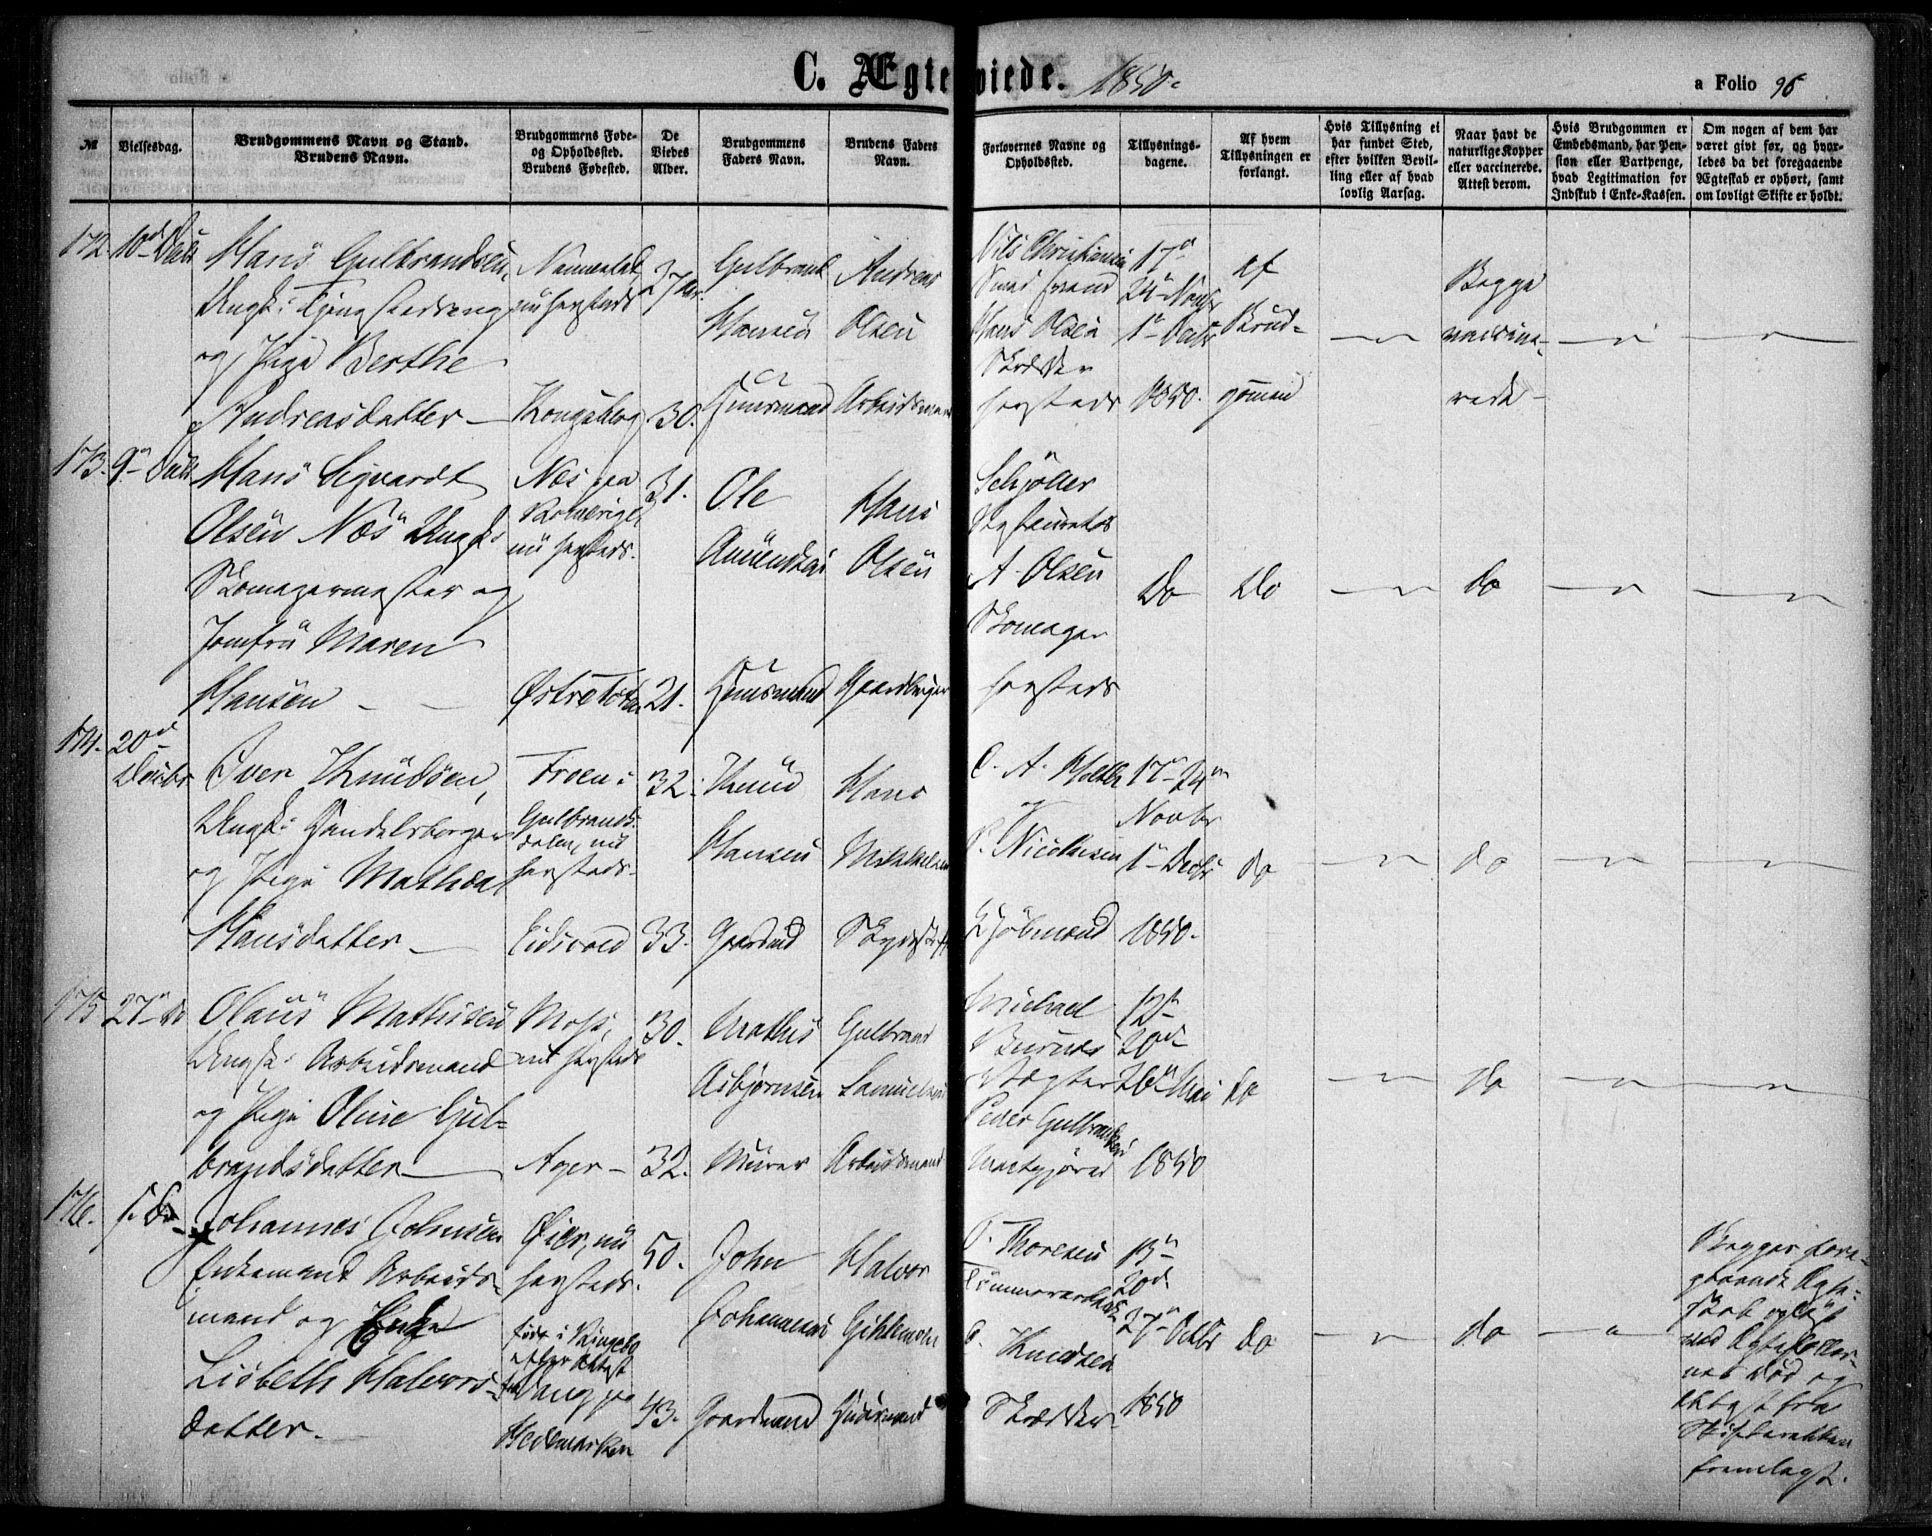 C. Ægteviede. 1850.
a Folio 96
№
Vielsesdag.
Brudgommens Navn og Stand.
Brudens Navn.
Brudgommens Føde-
og Opholdssted.
Brudens Fødested.
De
Viedes
Alder.
Brudgommens
Faders Navn.
Brudens Faders
Navn.
Forlovernes Navne og
Opholdssted.
Tillysnings-
dagene.
Af hvem
Tillysningen er
forlangt.
Hvis Tillysning ei
har fundet Sted,
efter hvilken Bevil-
ling eller af hvad
lovlig Aarsag.
Naar havt de
naturlige Kopper
eller vaccinerede.
Attest derom.
Hvis Brudgommen er
Embedsmand, har Pen-
sion eller Vartpenge,
hvad Legitimation for
Indskud i Enke-Kassen.
Om nogen af dem har
været gift før, og hvor-
ledes da det foregaaende
Ægteskab er ophørt, samt
om lovligt Skifte er holdt.
172.
Hans Gulbrandsen,
Ungk:
og Pige Berthe
Andreasdatter
nu hersteds
Kongsberg
27 Aar.
30.
Gulbrand
Hansen
Huusmand
Andreas
Olsen
Arbeidsmand
Nils Christiansen
Hans Olsen
Skrædder
hersteds
17
24 Novbr
1 Decbr
1850.
Af
Brud-
gommen
Begge
vaccine-
rede
173.
Hans Sigvardt
Olsen Næs Ungk:
Skomagermester og
Jomfru Maren
Hansen
Næs paa
nu hersteds.
Østre Toten
31.
21.
Ole
Amundsen
Huusmand
Hans
Olsen
Gaardbruger
A. Olsen
Skomager
hersteds
Do
Do
do
174.
20de
Decbr
Iver Knudsen,
Ungk: Handelsborger
og Pige Mathea
Hansdatter
Froen i
Gulbrands-
dalen, nu
hersteds.
Eidsvold
32.
33.
Knud
Hansen
Gaardmd
Hans
Mikkelsen
C. A. Holter
og
P. Nicolaisen
Kjøbmænd
17 24
Novbr
1 Decbr
1850.
do
do
175
27 Do
Olaus Mathisen
Ungk: Arbeidsmand
og Pige Oline Gul-
brandsdatter
Moss,
nu hersteds
Ager
30.
32.
Mathis
Asbjørnsen
Murer
Gulbrand
Samuelsen
Arbeidsmand
Michael
Vægter
Peder Gulbrandsen
12
20de
26 Mai
1850
do
do
176.
Johannes Johnsen
Enkemand Arbeids-
mand og Enke
Lisbeth Halvors-
datter.
Øier, nu
hersteds.
født i Ringebo
efter Attest
Vang paa
Hedemarken
50.
43.
John
Johannesen
Gaardmand
Halvor
Huusmand
O. Thoresen
O. Knudsen
Skrædder
13
20de
27 Octbr
1850
do
do
Begges fore-
gaaende Ægte-
skab opløst
ved Ægtefæller-
nes Død og
Attest fra
Skifteretten
fremlagt.